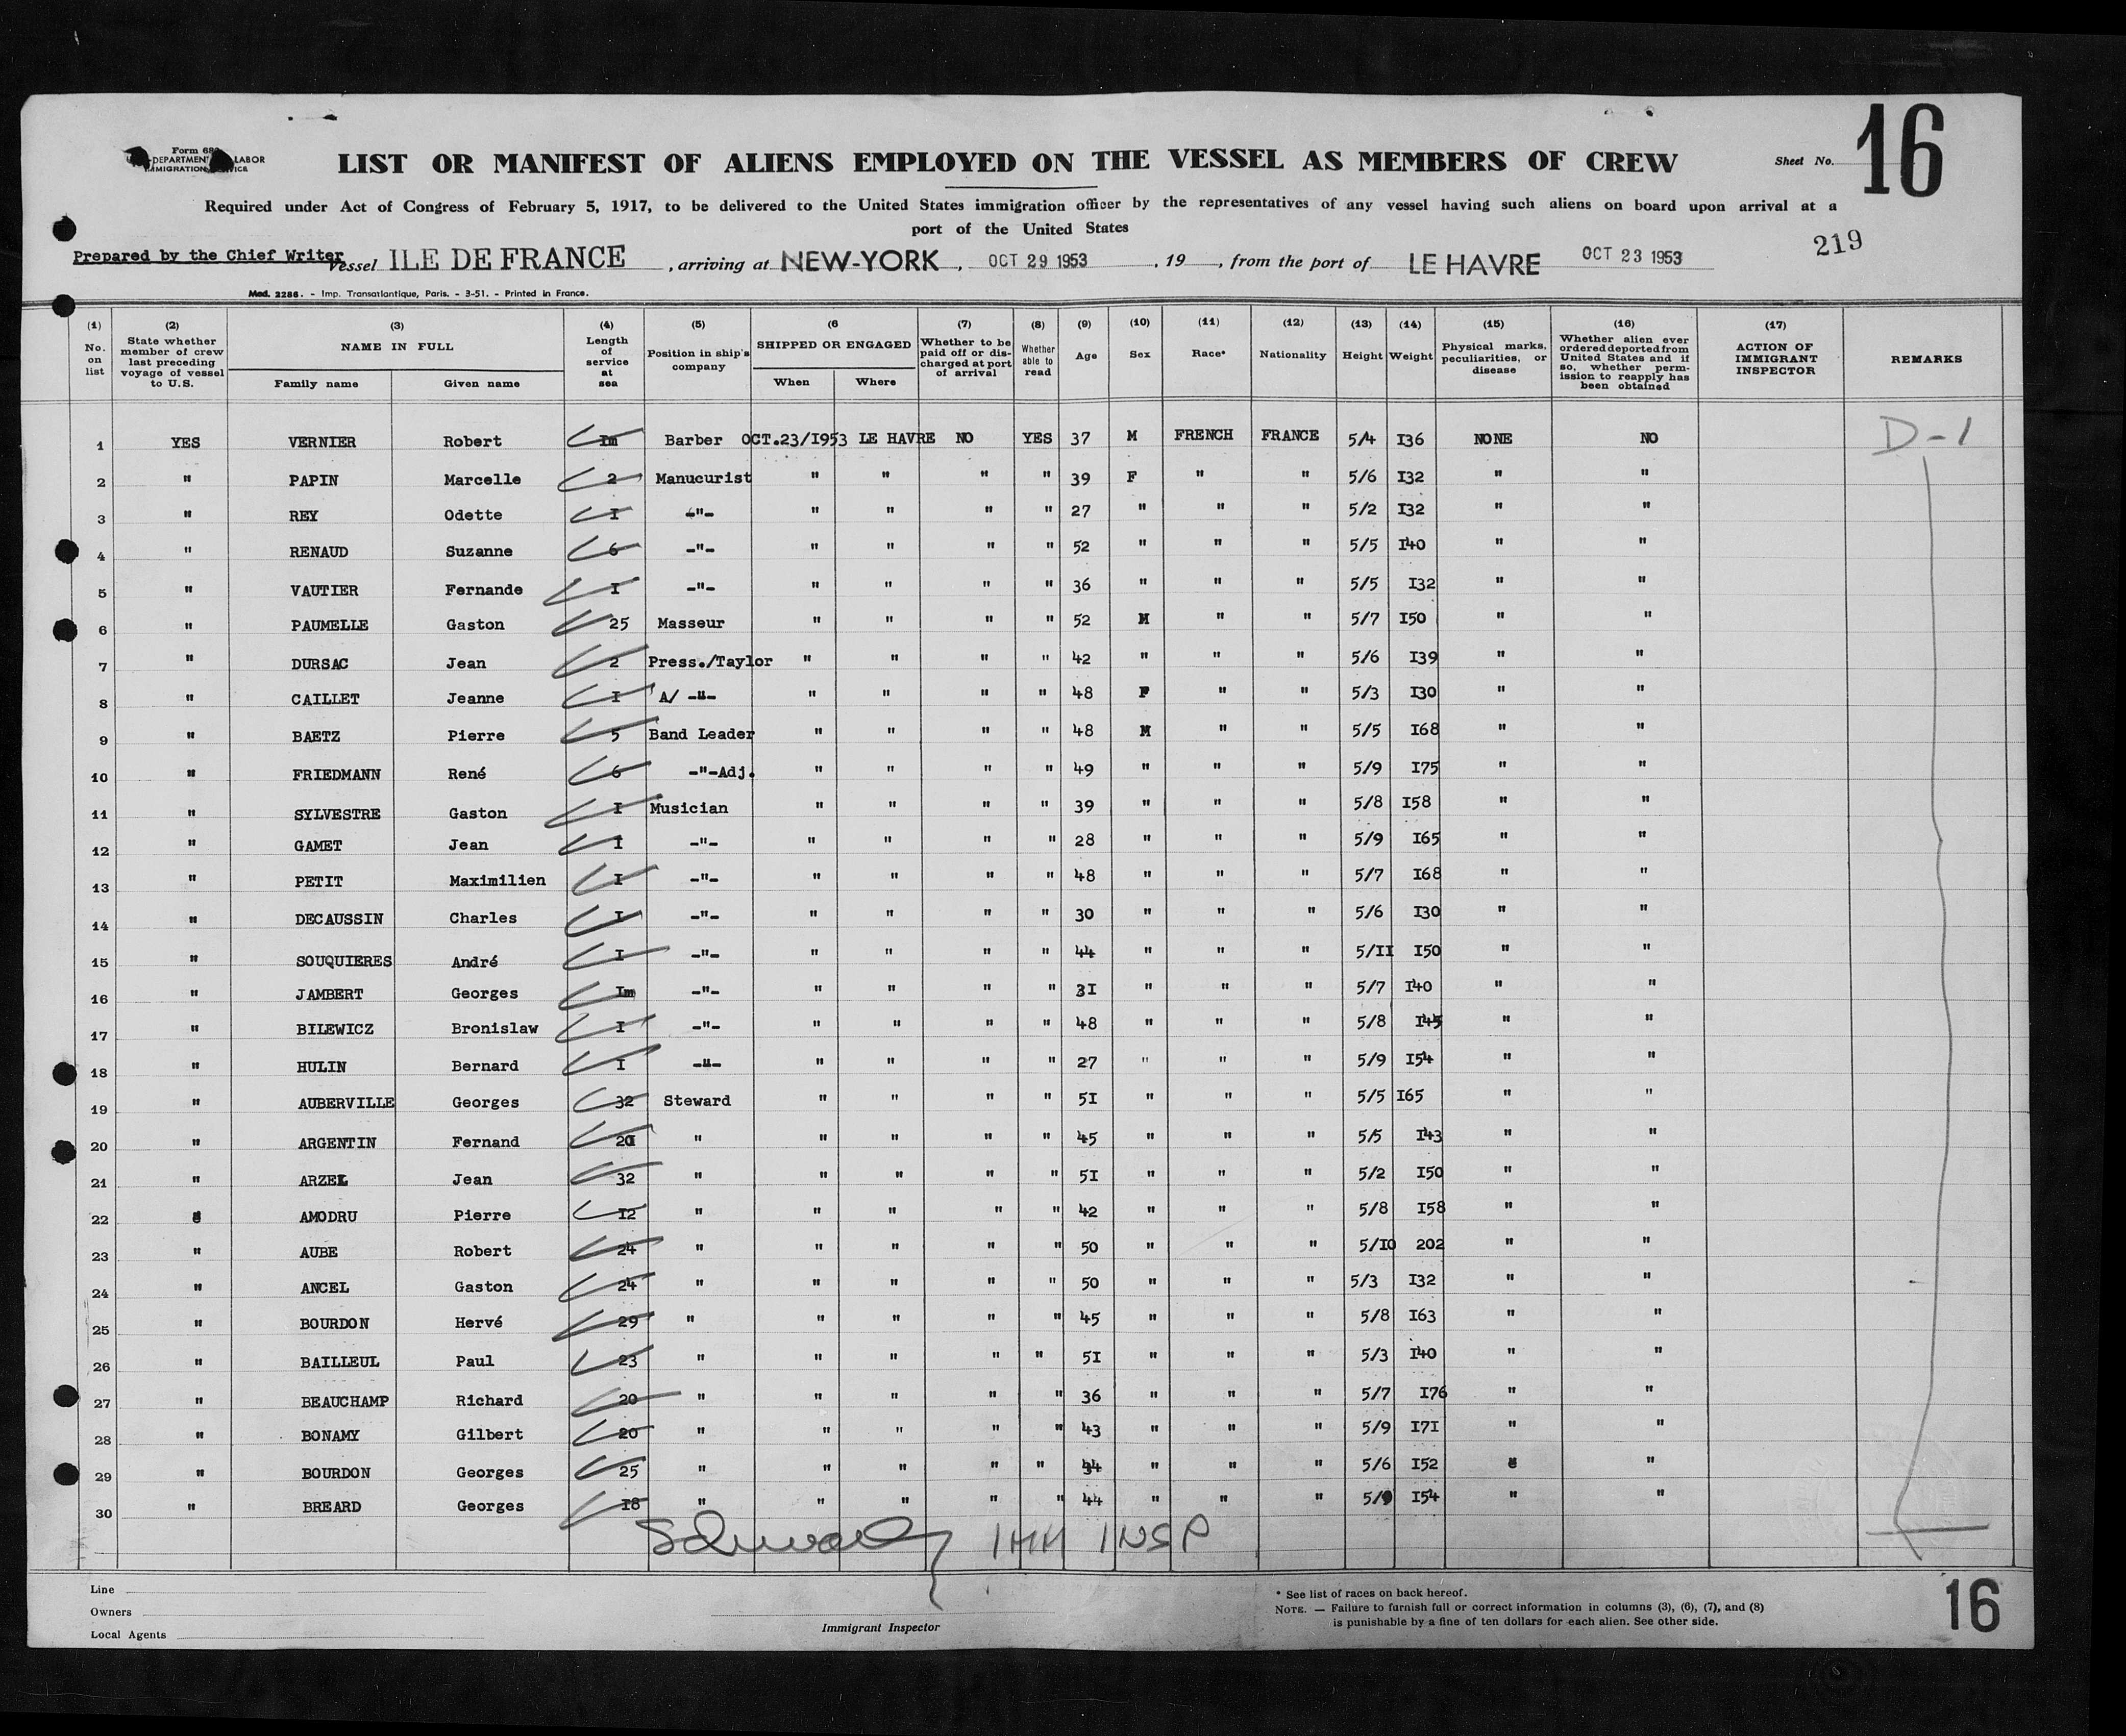 Form 689
DEPARTMENT LABOR
IMMIGRATION SERVICE
LIST OR MANIFEST OF ALIENS EMPLOYED ON THE VESSEL AS MEMBERS OF CREW
Sheet No. 16
Required under Act of Congress of February 5, 1917, to be delivered to the United States immigration officer by the representatives of any vessel having such aliens on board upon arrival at a
port of the United States
219
Prepared by the Chief Writer
Vessel ILE DE FRANCE, arriving at NEW-YORK, OCT 29 1953, 19 , from the port of LE HAVRE OCT 23 1953
Mod. 2286. - Imp. Transatlantique, Paris. - 3-51. - Printed in France.
(1) No. on list (2) State whether member of crew last preceding voyage of vessel to U.S. (3) NAME IN FULL Family name Given name (4) Length of service at sea (5) Position in ship's company (6 SHIPPED OR ENGAGED When Where (7) Whether to be paid off or discharged at port of arrival (8) Whether able to read (9) Age (10) Sex (11) Race* (12) Nationality (13) Height (14) Weight (15) Physical marks, peculiarities, or disease (16) Whether alien ever ordered deported from United States and if so, whether permission to reapply has been obtained (17) ACTION OF IMMIGRANT INSPECTOR REMARKS
1 YES VERNIER Robert Im Barber OCT.23/I953 LE HAVRE NO YES 37 M FRENCH FRANCE 5/4 I36 NONE NO D-1
2 " PAPIN Marcelle 2 Manucurist " " " " 39 F " " 5/6 I32 " "
3 " REY Odette I -"- " " " " 27 " " " 5/2 I32 " "
4 " RENAUD Suzanne 6 -"- " " " " 52 " " " 5/5 I40 " "
5 " VAUTIER Fernande I -"- " " " " 36 " " " 5/5 I32 " "
6 " PAUMELLE Gaston 25 Masseur " " " " 52 M " " 5/7 I50 " "
7 " DURSAC Jean 2 Press./Taylor " " " " 42 " " " 5/6 I39 " "
8 " CAILLET Jeanne I A/ -"- " " " " 48 F " " 5/3 I30 " "
9 " BAETZ Pierre 5 Band Leader " " " " 48 M " " 5/5 I68 " "
10 " FRIEDMANN René 6 -"-Adj. " " " " 49 " " " 5/9 I75 " "
11 " SYLVESTRE Gaston I Musician " " " " 39 " " " 5/8 I58 " "
12 " GAMET Jean I -"- " " " " 28 " " " 5/9 I65 " "
13 " PETIT Maximilien I -"- " " " " 48 " " " 5/7 I68 " "
14 " DECAUSSIN Charles I -"- " " " " 30 " " " 5/6 I30 " "
15 " SOUQUIERES André I -"- " " " " 44 " " " 5/II I50 " "
16 " JAMBERT Georges Im -"- " " " " 3I " " " 5/7 I40 " "
17 " BILEWICZ Bronislaw I -"- " " " " 48 " " " 5/8 I45 " "
18 " HULIN Bernard I -"- " " " " 27 " " " 5/9 I54 " "
19 " AUBERVILLE Georges 32 Steward " " " " 5I " " " 5/5 I65 " "
20 " ARGENTIN Fernand " " " " " 45 " " " 5/5 I43 " "
21 " ARZEL Jean 32 " " " " " 5I " " " 5/2 I50 " "
22 " AMODRU Pierre I2 " " " " " 42 " " " 5/8 I58 " "
23 " AUBE Robert 24 " " " " " 50 " " " 5/I0 202 " "
24 " ANCEL Gaston 24 " " " " " 50 " " " 5/3 I32 " "
25 " BOURDON Hervé 29 " " " " " 45 " " " 5/8 I63 " "
26 " BAILLEUL Paul 23 " " " " " 5I " " " 5/3 I40 " "
27 " BEAUCHAMP Richard 20 " " " " " 36 " " " 5/7 I76 " "
28 " BONAMY Gilbert 20 " " " " " 43 " " " 5/9 I7I " "
29 " BOURDON Georges 25 " " " " " " " " 5/6 I52 " "
30 " BREARD Georges I8 " " " " " 44 " " " 5/9 I54 " "
INSP
Line
Owners
Local Agents
Immigrant Inspector
* See list of races on back hereof.
NOTE. — Failure to furnish full or correct information in columns (3), (6), (7), and (8)
is punishable by a fine of ten dollars for each alien. See other side.
16